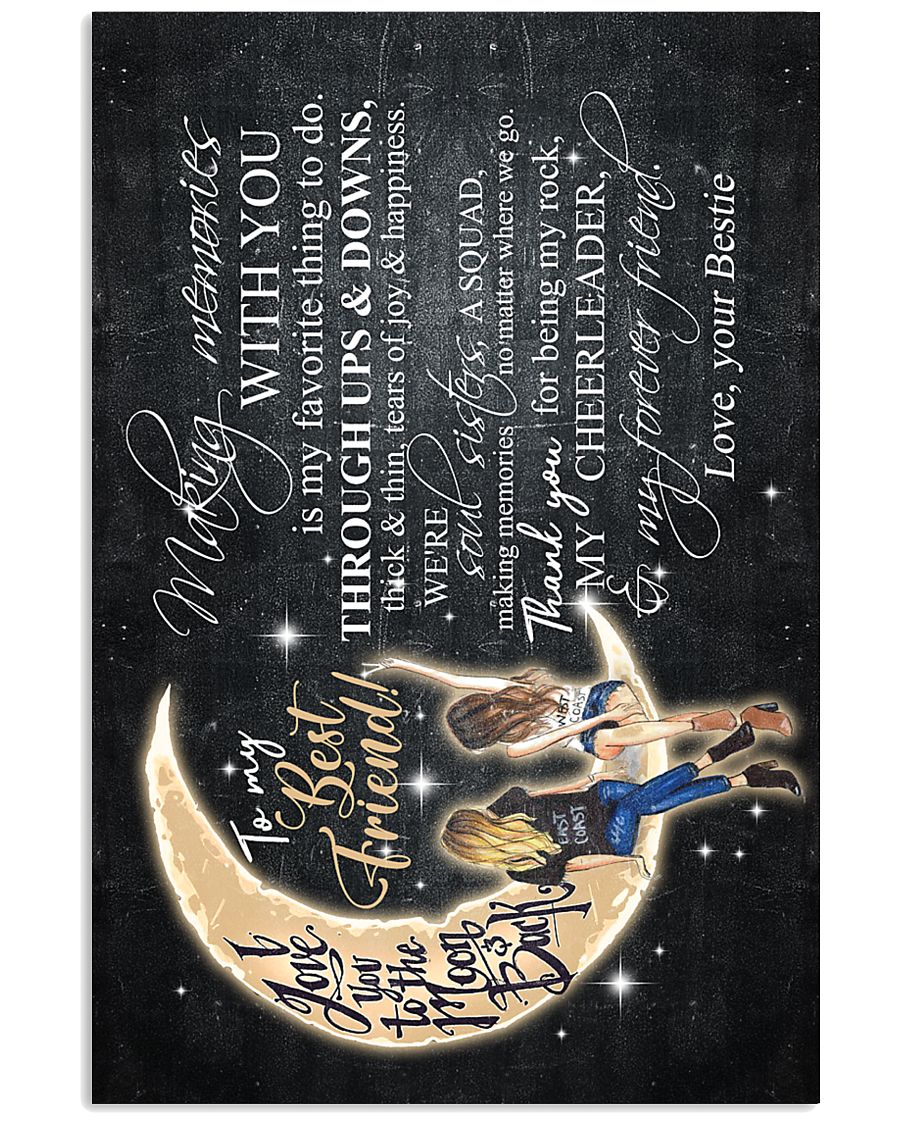 To my
Best
Friend!
I
Love
You
to the
Moon
&
Back
WEST
COAST
EAST
COAST
Making memories
WITH YOU
is my favorite thing to do.
THROUGH UPS & DOWNS,
thick & thin, tears of joy & happiness.
WE'RE
soul sisters, A SQUAD,
making memories no matter where we go.
Thank you for being my rock,
MY CHEERLEADER,
& my forever friend.
Love, your Bestie